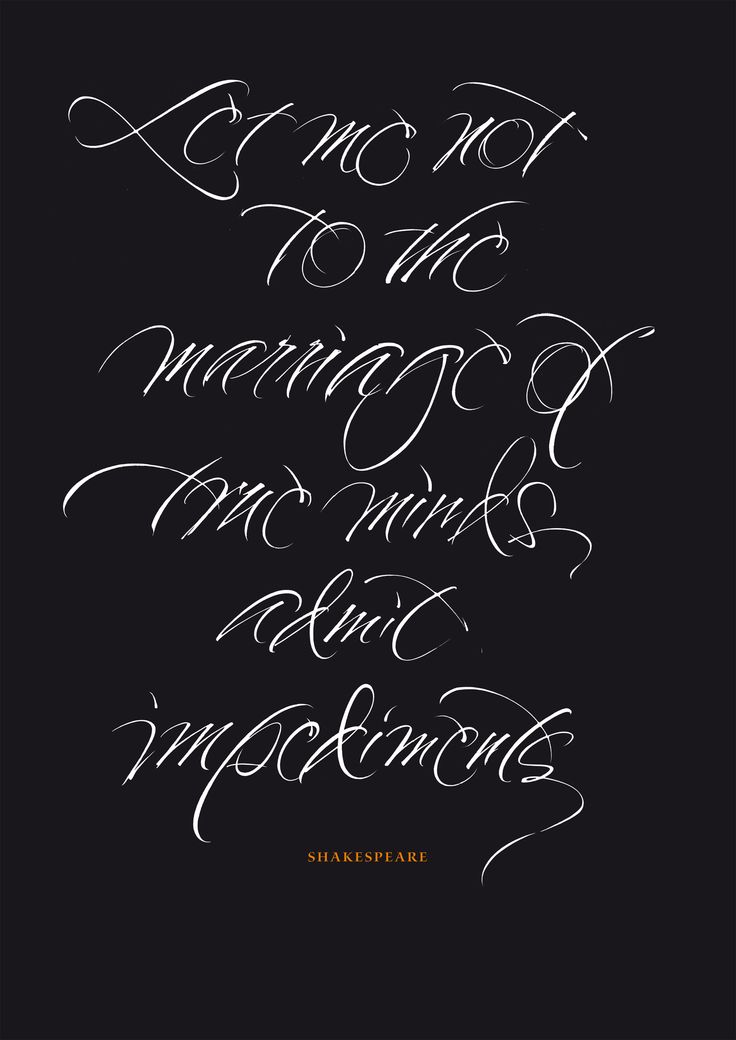 Let me not
to the
marriage of
true minds
admit
impediments
SHAKESPEARE